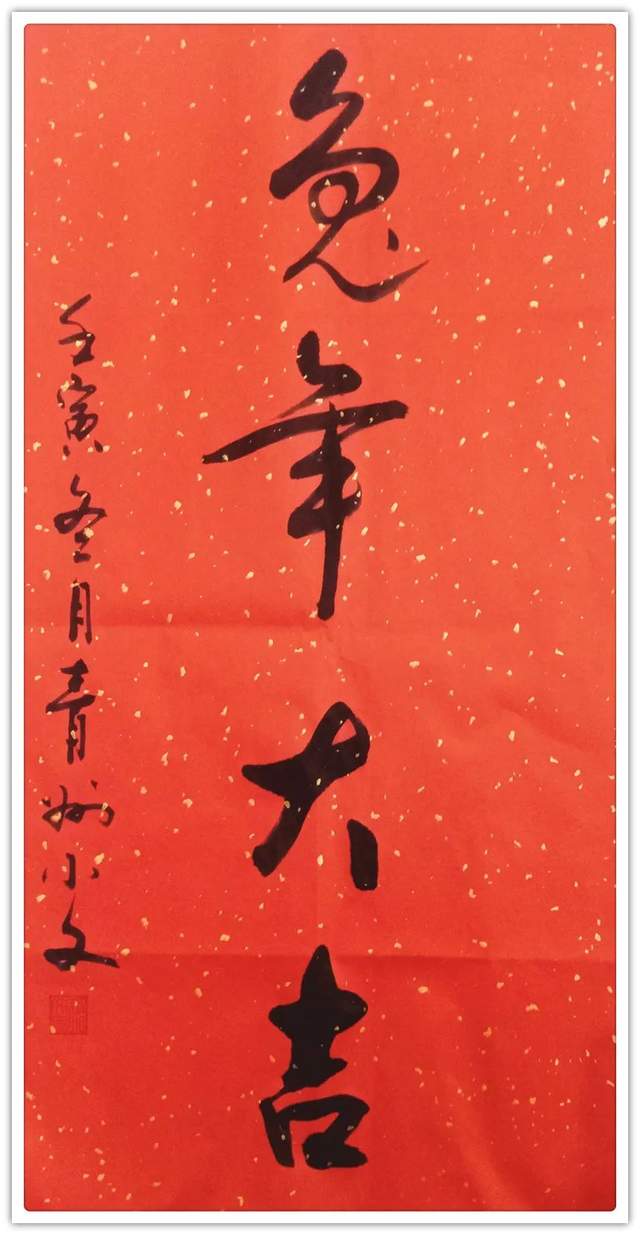 兔年大吉
壬寅冬月青州小文